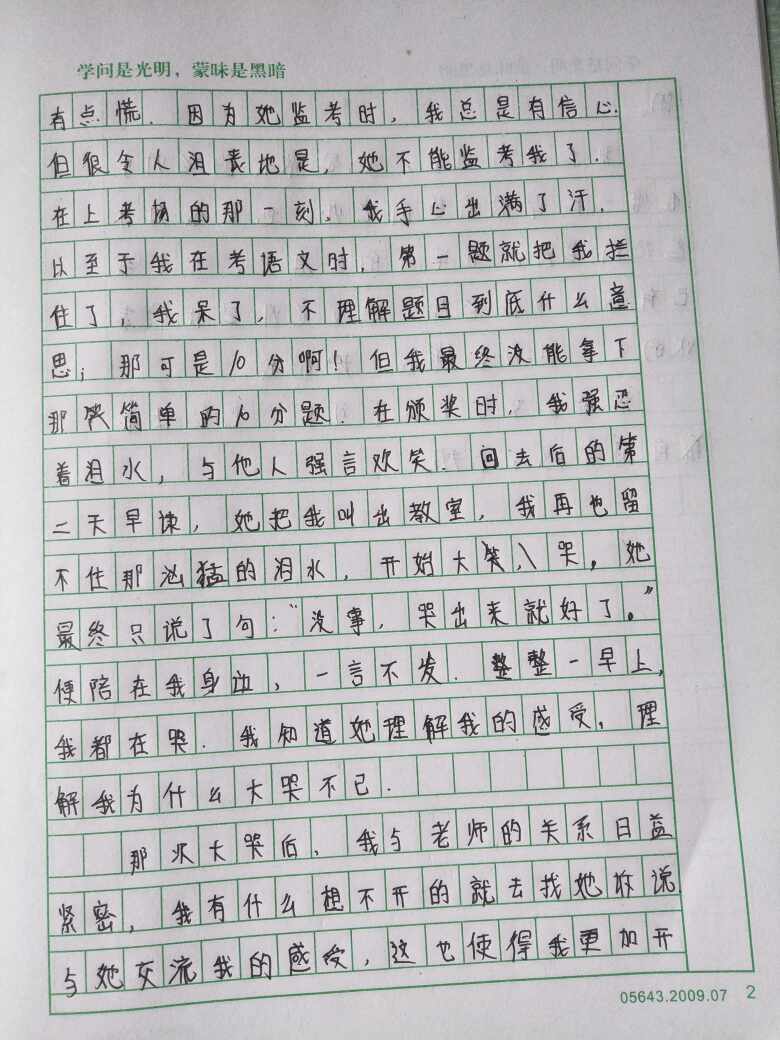 学问是光明，蒙昧是黑暗
有点慌．因有她监考时，我总是有信心．
但很令人沮丧地是，她不能监考我了．
在上考场的那一刻，我手心出满了汗．
以至于我在考语文时，第一题就把我拦
住了，我呆了，不理解题目到底什么意
思；那可是10分啊！但我最终没能拿下
那简单的10分题．在颁奖时，我强忍
着泪水，与他人强言欢笑．回去后的第
二天早读，她把我叫出教室，我再也留
不住那汹猛的泪水，开始大哭，她
最终只说了句：“没事，哭出来就好了。”
便陪在我身边，一言不发．整整一早上，
我都在哭．我知道她理解我的感受，理
解我为什么大哭不已．
那次大哭后，我与老师的关系日益
紧密，我有什么想不开的就去找她诉说
与她交流我的感受，这也使得我更加开
05643.2009.07 2